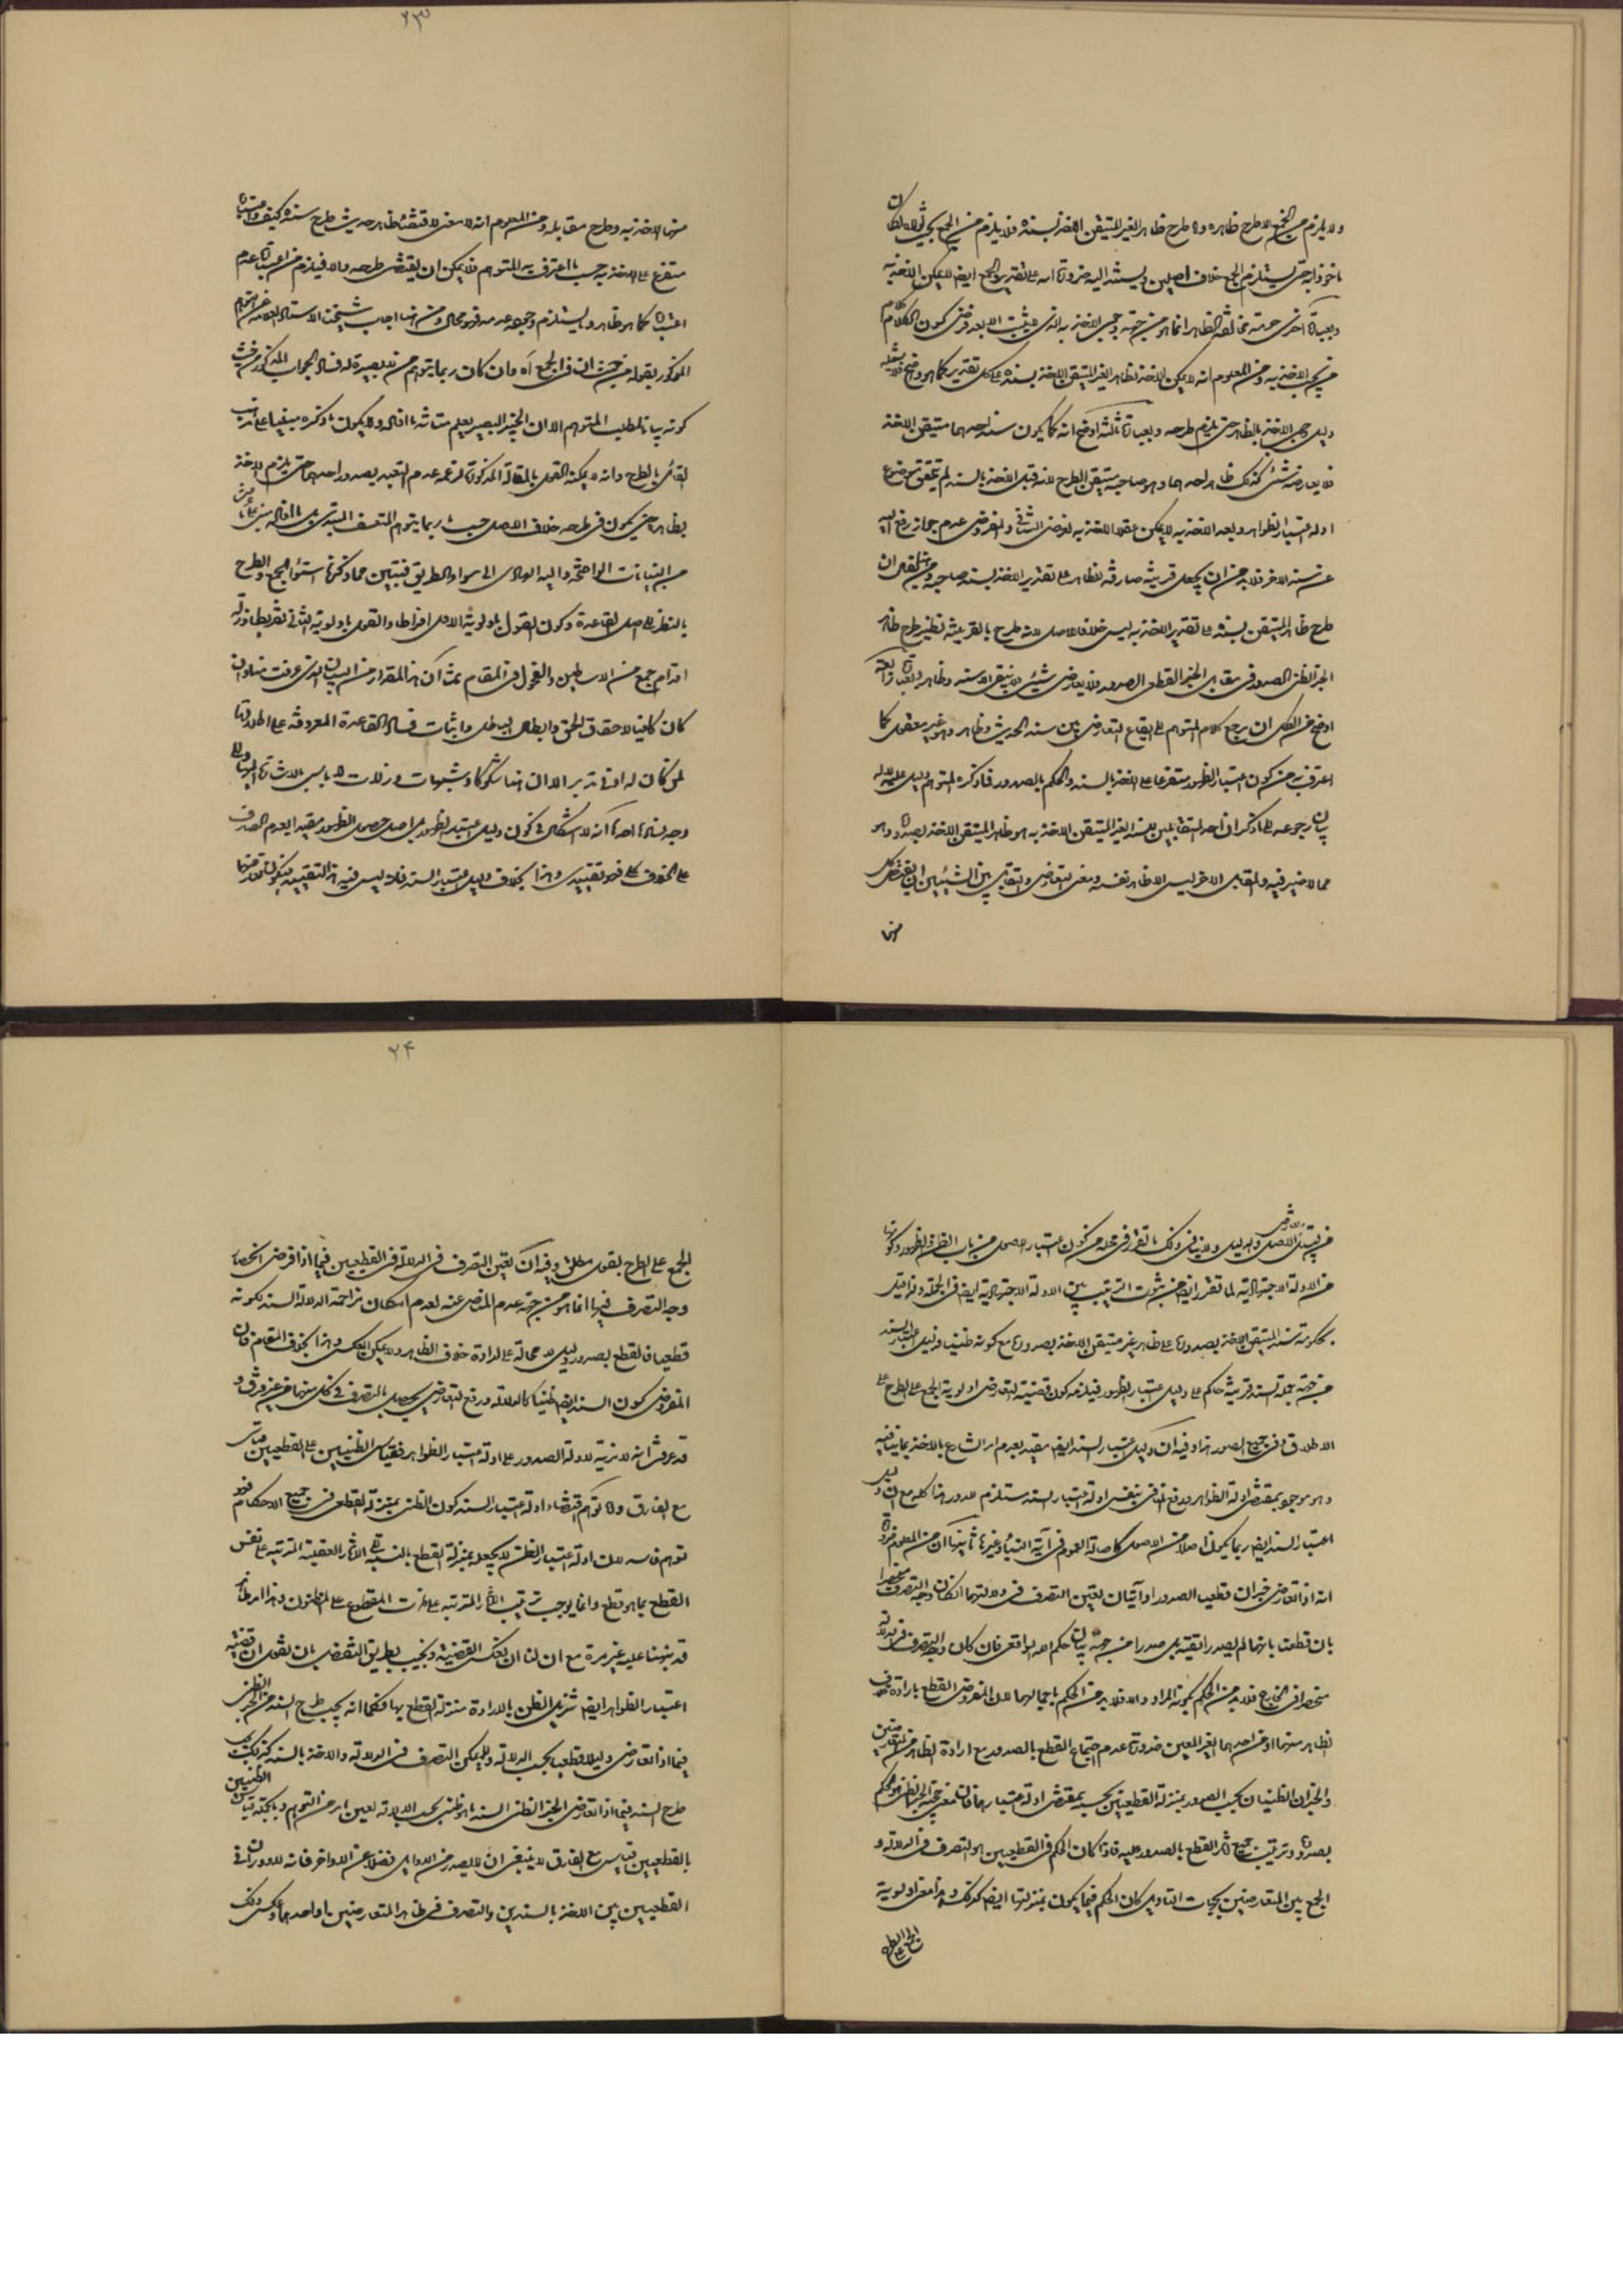 ولا يلزم من الجمع الا طرح ظاهره واما طرح ظاهر الغير المتيقن الاخذ بسنده فلا يلزم من الجمع
ماخوذا به حتى يستلزم الجمع خلاف اصلين ويستند اليه ضرورة انه على تقدير الجمع ايضا لا يمكن الاخذ به
وبعبارة اخرى حرمة مخالفة الظاهر انما هو من جهة وجوب الاخذ به الذى لا يثبت الا بعد فرض كون الكلام
يجب الاخذ به ومن المعلوم انه لا يمكن الاخذ بظاهر الغير المتيقن الاخذ بسنده على كل تقدير كما هو واضح فلا يشمله
دليل وجوب الاخذ بالظاهر حتى يلزم طرحه وبعبارة ثالثة اوضح انه كما يكون سند احدهما متيقن الاخذ
فلا يعارضه شئ كذلك ظاهر احدهما وهو صاحبه متيقن الطرح لانه قبل الاخذ بالسند لم يتحقق موضوع
ادلة اعتبار الظواهر وبعد الاخذ به لا يمكن عقلا الاخذ به لفرض التنافى والمفروض عدم جواز رفع اليد
عن سند الاخر فلا بد من ان يجعل قرينة صارفة للظاهر على تقدير الاخذ بسند صاحبه
طرح ظاهر المتيقن بسنده على تقدير الاخذ به ليس خلاف الاصل لانه طرح بالقرينة نظير طرح ظاهر
الخبر الظنى الصدور فى مقابل الخبر القطعى الصدور فلا يعارض شيئ
اوضح من الكل ان مرجع كلام المتوهم الى ايقاع التعارض بين سند الحديث وظاهره وهو غير معقول كما
اعترف به من كون اعتبار الظهور متفرعا على الاخذ بالسند والحكم بالصدور فما ذكره المتوهم دليل عليه لا له
بيان رجوعه الى ما ذكر ان احد المتقابلين السند الغير المتيقن الاخذ به هو ظاهر المتيقن الاخذ بصدوره وهو
مما لا ضير فيه والمقابل الاخر ليس الا ظاهر نفسه ومعنى التعارض والتقابل بين الشيئين ان يقتضى كل
منهما
۲۳
منهما الاخذ به وطرح مقابله ومن المعلوم انه لا معنى لاقتضاء ظاهر حديث طرح سنده كيف واعتباره
متفرع على الاخذ به حسب ما اعترف به المتوهم فلا يمكن ان يقتضى طرحه والا فيلزم من اعتباره عدم
اعتباره كما هو ظاهر وما يستلزم وجوده عدمه فهو محال ومن هنا اجاب شيخنا الاستاد العلامة عن التوهم
المذكور بقوله من حيث ان فى الجمع آه وان كان ربما يتوهم من لا بصيرة له فساد الجواب المذكور من حيث
كونه بيانا لمطلب المتوهم الا ان الخبير البصير يعلم متانة ما افاده ولا يكون ما ذكره مبنيا على مذهب
القائل بالطرح وانه لا يمكنه القول بالمقالة المذكورة لزعمه عدم التعبد بصدور احدهما حتى يلزم الاخذ
بظاهره حتى يكون فى طرحه خلاف الاصل حسب ما ربما يتوهم المتعسف المبتدى بل ما افاده مبنى على
من البيانات الواضحة والله الهادى الى سواء الطريق فتبين مما ذكرنا استواء الجمع والطرح
بالنظر الى اصل القاعدة وكون القول باولوية الاول افراطا والقول باولوية الثانى تفريطا وزلة
اقدام جمع من الاساطين والفحول فى المقام ثم ان هذا المقدار من البيان الذى عرفت
كان كافيا لاحقاق الحق وابطال الباطل واثبات فساد القاعدة المعروفة على اطلاقها
لمن كان له ادنى تدبر الا ان هنا شكوكا وشبهات وزلات لا باس بالاشارة اليها
وجه فسادها احدها انه لا اشكال فى كون دليل اعتبار الظهور بل اصل حصول الظهور مقيدا بعدم الصارف
على الخلاف كل فهو تقييدى وهذا بخلاف دليل اعتبار السند فانه ليس فيه هذا التقييد فيكون
من قبيل الاصل والدليل ولا ينافى ذلك ما تقرر فى محله من كون اعتبار الاصول من باب الظن والظهور وكونها
من الادلة الاجتهادية لما تقرر ايضا من ثبوت الترتيب بين الادلة الاجتهادية ايضا فى الجملة
بحكومة سند المتيقن الاخذ بصدوره على ظاهر غير متيقن الاخذ بصدوره مع كونه ظنيا فدليل اعتبار السند
من جهة جعله السند قرينة حاكم على دليل اعتبار الظهور فيلزمه كون قضية التعارض اولوية الجمع على الطرح على
الاطلاق وفى جميع الصور هذا وفيه ان دليل اعتبار السند ايضا مقيد بعدم امر الشارع بالاخذ بما ينافيه
وهو موجود بمقتضى ادلة الظواهر ودفع المنافى بنفس ادلة اعتبار السند مستلزم للدور هذا كله مع ان دليل
اعتبار السند ايضا ربما يكون اصلا من الاصول كاصالة العموم فى آية النبأ وغيرها ثانيها ان من المعلوم ضرورة
انه اذا تعارض خبران قطعيا الصدور او آيتان تعين التصرف فى دلالتهما
بان قطعت بانهما لم يصدرا تقية بل صدرا من جهة بيان حكم الله الواقعى فان كان وجه التصرف
منحصرا فى الخارج فلا بد من الحكم بكونه المراد والا فلا بد من الحكم باجمالهما لان المفروض القطع بارادة خلاف
الظاهر منهما او من احدهما الغير المعين ضرورة عدم اجتماع القطع بالصدور مع ارادة الظاهر من المتعارضين
والخبران الظنيان بحسب الصدور بمنزلة القطعيين بحسبه بمقتضى ادلة اعتبارهما فان معنى حجية الخبر الظنى هو الحكم
بصدوره وترتيب جميع اثار القطع بالصدور عليه فاذا كان الحكم فى القطعيين هو التصرف فى الدلالة و
الجمع بين المتعارضين بحسب التاويل كان الحكم فيما يكون بمنزلتها ايضا كذلك وهذا معنى اولوية
الجمع على الطرح
۲۴
الجمع على الطرح بقول مطلق وفيه ان تعين التصرف فى الدلالة فى القطعيين فيما اذا فرض انحصار
وجه التصرف فيها انما هو من جهة عدم المناص عنه لعدم امكان مزاحمة الدلالة السند لكونه
قطعيا فالقطع بصدوره دليل لا محالة على ارادة خلاف الظاهر ولا يمكن العكس وهذا بخلاف المقام فان
المفروض كون السند ايضا ظنيا كالدلالة ورفع التعارض يحصل بالتصرف فى كل منهما من غير فرق و
قد عرفت انه لا مزية لادلة الصدور على ادلة اعتبار الظواهر فقياس الظنيين على القطعيين قياس
مع الفارق واما توهم اقتضاء ادلة اعتبار السند كون الظن بمنزلة القطع فى جميع الاحكام فهو
توهم فاسد لان ادلة اعتبار الظن لا يجعله بمنزلة القطع بالنسبة الى الاثار العقلية المترتبة على نفس
القطع بما هو قطع وانما يوجب ترتيب الاثار المترتبة على ذات المقطوع على المظنون وهذا امر ظاهر
قد نبهنا عليه غير مرة مع ان لنا ان نعكس القضية ونجيب بطريق النقض بان نقول ان قضية
اعتبار الظواهر ايضا تنزيل الظن بالارادة منزلة القطع بها فكما انه يجب طرح السند من الخبر الظنى
فيما اذا تعارض دليلا قطعيا بحسب الدلالة ولا يمكن التصرف فى الدلالة والاخذ بالسند كذلك يجب
طرح السند فيما اذا تعارض الخبر الظنى السند ما هو ظنى بحسب الدلالة لعين ما مر من التوهم وبالجملة قياس الظنيين
بالقطعيين قياس مع الفارق لا ينبغى ان يصدر من الاوائل فضلا عن الاواخر فانه لا دوران فى
القطعيين بين الاخذ بالسندين والتصرف فى ظاهر المتعارضين او احدهما وعكس ذلك